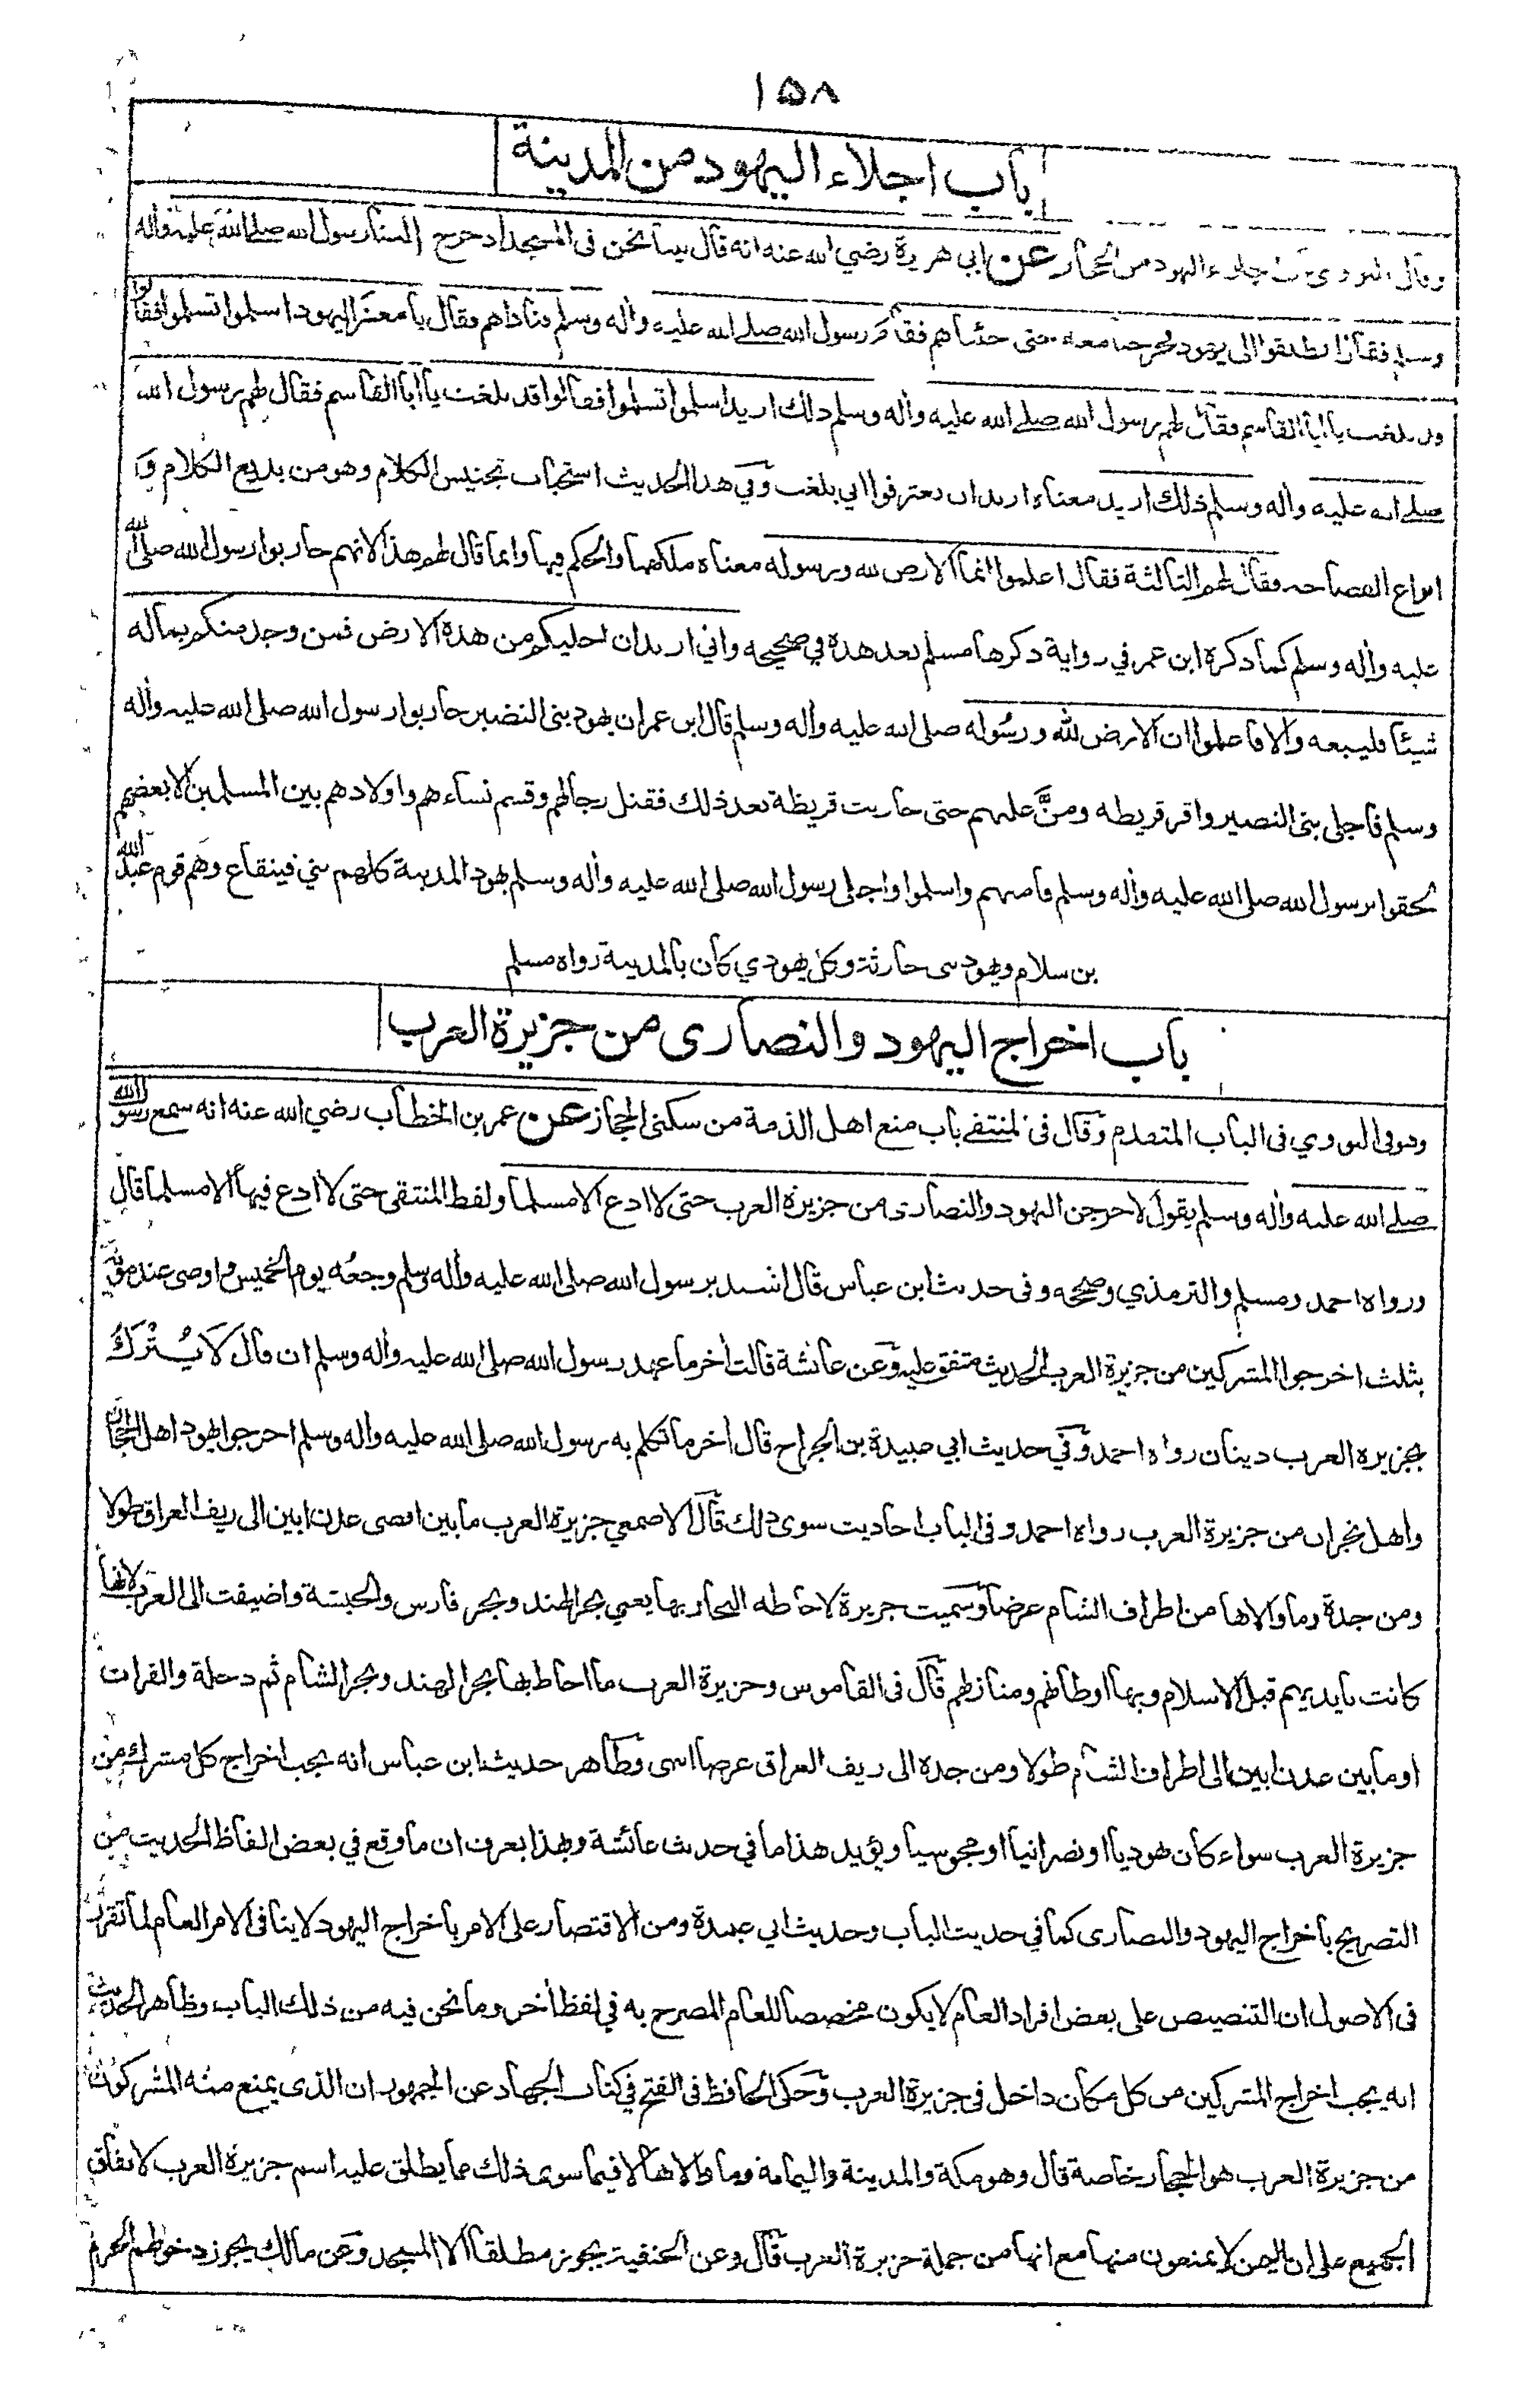 ١٥٨
باب اجلاء اليهود من المدينة
وقال النووي باب جلاء اليهود من الحجاز عن ابي هريرة رضي الله عنه انه قال بينا نحن في المسجد اذ خرج الينا رسول الله صلى الله عليه واله
وسلم فقال انطلقوا الى يهود فخرجنا معه حتى جئناهم فقام رسول الله صلے الله عليه واله وسلم فناداهم فقال يا معشر اليهود اسلموا تسلموا فقالوا
قد بلغت يا ابا القاسم فقال لهم رسول الله صلے الله عليه واله وسلم ذلك اريد اسلموا تسلموا فقالوا قد بلغت يا ابا القاسم فقال لهم رسول الله
صلے الله عليه واله وسلم ذلك اريد معناه اريد ان تعترفوا اني بلغت وفي هذا الحديث استحباب تجنيس الكلام وهو من بديع الكلام و
انواع الفصاحه فقال لهم الثالثة فقال اعلموا انما الارض لله ورسوله معناه ملكها والحكم فيها وانما قال لهم هذا لانهم حاربوا رسول الله صلى الله
عليه واله وسلم كما ذكره ابن عمر في رواية ذكرها مسلم بعد هذه في صحيحه واني اريد ان اجليكم من هذه الارض فمن وجد منكم بماله
شيئا فليبعه والا فاعلموا ان الارض لله ورسوله صلى الله عليه واله وسلم قال ابن عمر ان يهود بني النضير حاربوا رسول الله صلى الله عليه واله
وسلم فاجلى بني النضير واقر قريظه ومنّ عليهم حتى حاربت قريظة بعد ذلك فقتل رجالهم وقسم نساءهم واولادهم بين المسلمين الا بعضهم
لحقوا برسول الله صلى الله عليه واله وسلم فامنهم واسلموا واجلى رسول الله صلى الله عليه واله وسلم يهود المدينة كلهم بني قينقاع وهم قوم عبد الله
بن سلام ويهود بني حارثة وكل يهودي كان بالمدينة رواه مسلم
باب اخراج اليهود والنصارى من جزيرة العرب
وهو في النووي في الباب المتقدم وقال في المنتقے باب منع اهل الذمة من سكنى الحجاز عن عمر بن الخطاب رضي الله عنه انه سمع رسول الله
صلے الله عليه واله وسلم يقول لاخرجن اليهود والنصارى من جزيرة العرب حتى لا ادع الا مسلما ولفظ المنتقى حتى لا ادع فيها الا مسلما قال
ورواه احمد ومسلم والترمذي وصححه وفي حديث ابن عباس قال اشتد برسول الله صلى الله عليه واله وسلم وجعه يوم الخميس واوصى عند موته
بثلث اخرجوا المشركين من جزيرة العرب الحديث متفق عليه وعن عائشة قالت اخر ما عهد رسول الله صلى الله عليه واله وسلم ان قال لَا يُتْرَكُ
بجزيره العرب دينان رواه احمد وفي حديث ابي عبيدة بن الجراح قال اخر ما تكلم به رسول الله صلى الله عليه واله وسلم اخرجوا يهود اهل الحجاز
واهل نجران من جزيرة العرب رواه احمد وفي الباب احاديث سوى ذلك قال الاصمعي جزيرة العرب ما بين اقصى عدن ابين الى ريف العراق طولا
ومن جدة وما والاها من اطراف الشام عرضا وسميت جزيرة لاحاطه البحار بها يعني بحر الهند وبحر فارس والحبشة واضيفت الى العرب لانها
كانت بايديهم قبل الاسلام وبها اوطانهم ومنازلهم قال في القاموس وجزيرة العرب ما احاط بها بحر الهند وبحر الشام ثم دجلة والفرات
او ما بين عدن ابين الى اطراف الشام طولا ومن جده الى ريف العراق عرضا انتهى وظاهر حديث ابن عباس انه يجب اخراج كل مشرك من
جزيرة العرب سواء كان يهوديا او نصرانيا او مجوسيا ويؤيد هذا ما في حديث عائشة وبهذا يعرف ان ما وقع في بعض الفاظ الحديث من
التصريح باخراج اليهود والنصارى كما في حديث الباب وحديث ابي عبيدة ومن الاقتصار على الامر باخراج اليهود لا ينافي الامر العام لما تقرر
في الاصول ان التنصيص على بعض افراد العام لا يكون مخصصا للعام المصرح به في لفظ اخر وما نحن فيه من ذلك الباب وظاهر الحديث
انه يجب اخراج المشركين من كل مكان داخل في جزيرة العرب وحكى الحافظ في الفتح في كتاب الجهاد عن الجمهور ان الذي يمنع منه المشركون
من جزيرة العرب هو الحجاز خاصة قال وهو مكة والمدينة واليمامة وما والاها لا فيما سوى ذلك مما يطلق عليه اسم جزيرة العرب لاتفاق
الجميع على ان اليمن لا يمنعون منها مع انها من جملة جزيرة العرب قال وعن الحنفية يجوز مطلقا الا المسجد وعن مالك يجوز دخولهم الحرم